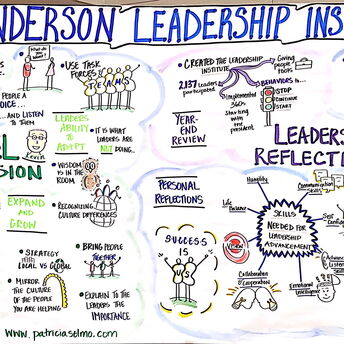 NDERSON LEADERSHIP INS
What do
you
want?
USE TASK
FORCES
TEAMS
PEOPLE A
OICE...
... AND LISTEN
TO THEM
LEADERS
ABILITY
TO
ADAPT
IT IS WHAT
LEADERS ARE
NOT DOING...
Kevin
SION
WISDOM
IS IN THE
ROOM
EXPAND
AND
GROW
RECOGNIZING
CULTURE DIFFERENCES
STRATEGY
LOCAL VS GLOBAL
BRING PEOPLE
TOGETHER
MIRROR THE
CULTURE OF
THE PEOPLE
YOU ARE HELPING
EXPLAIN TO
THE LEADERS THE
IMPORTANCE
www.patriciaselmo.com
CREATED THE LEADERSHIP
INSTITUTE
Giving
people
tools
2,137 Leaders
participated
Implemented
360s
Starting
with the
president
BEHAVIORS to...
STOP
CONTINUE
START
YEAR-
END
REVIEW
LEADERS
REFLECTIO
PERSONAL
REFLECTIONS
SUCCESS
IS
US
Humility
Communication
Skills
Life Balance
SKILLS
NEEDED FOR
LEADERSHIP
ADVANCEMENT
Self Confid
Advance
Listen
Collaboration
& Cooperation
Emotional
Intelligence